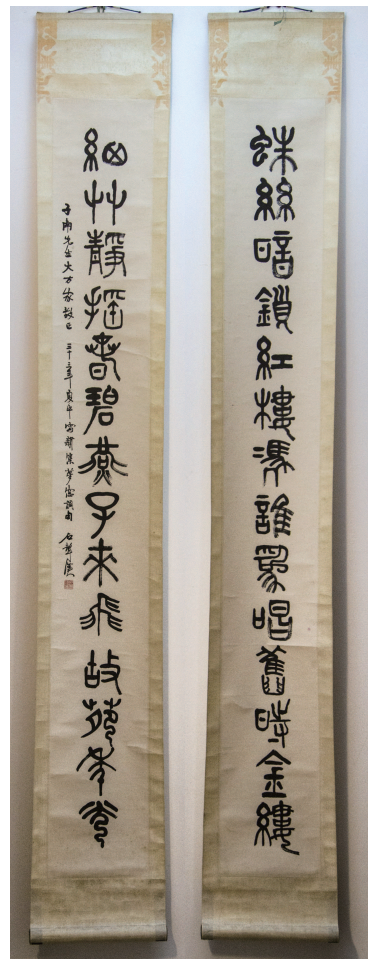 蛛絲暗鎖紅樓馮誰爲唱舊時金縷
細艸靜搖春碧燕子來飛故苑秊光
子雨先生大方家教正 三十三年夏 集夢窗詞句